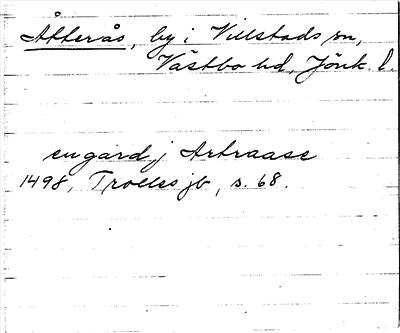 Åtterås, by i Villstads sn,
Västbo hd, Jönk. l.
en gard j Atraase
1498, Trolles jb, s. 68.